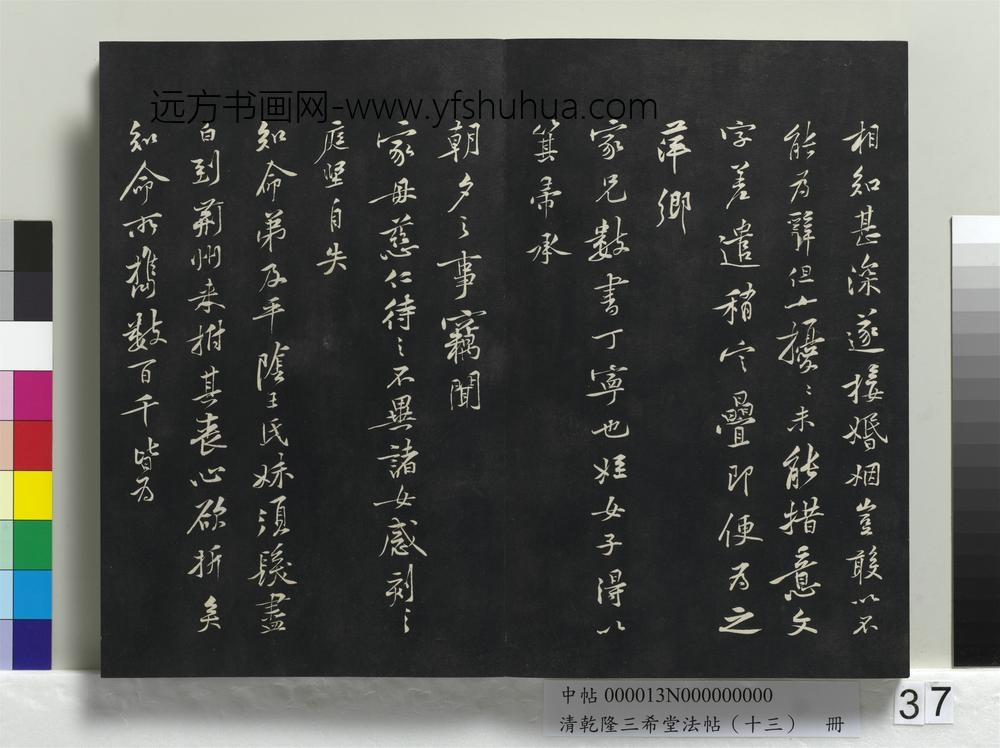 远方书画网-www.yfshuhua.com
相知甚深遂接婚姻豈敢以不
能為辭但亡擾〻未能措意文
字差遣稍定疊即便為之
萍鄉
家兄數書丁寧也姪女子得以
箕帚承
朝夕之事竊聞
家母慈仁待之不異諸女感刻〻
庭堅自失
知命弟及平陰王氏妹須髮盡
白到荊州未拊其喪心欲折矣
知命所攜數百千皆為
中帖 000013N000000000
清乾隆三希堂法帖（十三） 冊
37